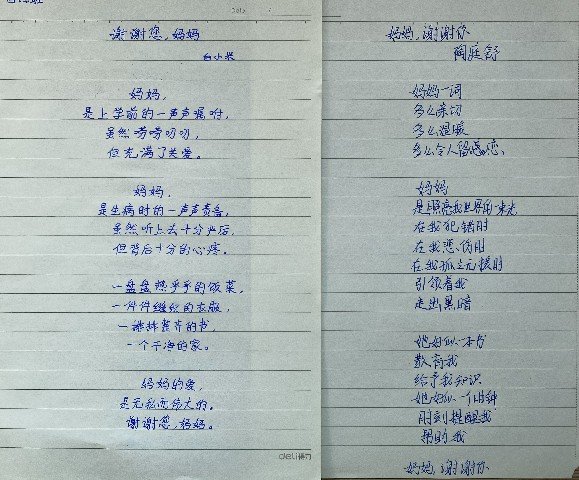 谢谢您,妈妈
白小米
妈妈,
是上学前的一声声嘱咐,
虽然唠唠叨叨,
但充满了关爱。
妈妈,
是生病时的一声声责备,
虽然听上去十分严厉,
但背后十分的心疼。
一盘盘热乎乎的饭菜,
一件件缝织的衣服,
一排排整齐的书,
一个干净的家。
妈妈的爱,
是无私而伟大的。
谢谢您,妈妈。
deli得力
妈妈,谢谢你
陶庭舒
妈妈一词
多么亲切
多么温暖
多么令人留恋
妈妈
是照亮我世界的一束光
在我犯错时
在我悲伤时
在我孤立无援时
引领着我
走出黑暗
她好似一本书
教育我
给予我知识
她好似一个时钟
时刻提醒我
帮助我
妈妈,谢谢你